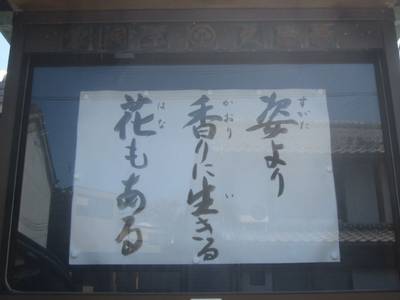 姿より
香りに生きる
花もある
すがた
かおり
い
はな